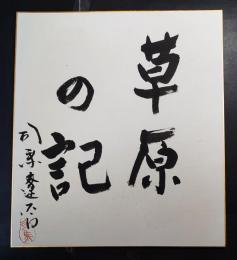 草原
の記
司馬遼太郎